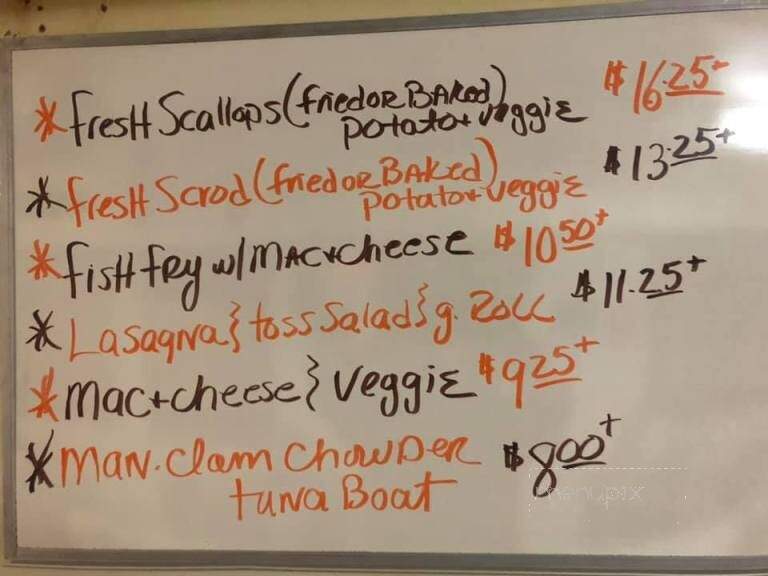 * fresh Scallops (fried or Baked) $16.25+
potato + veggie
* fresh Scrod (fried or Baked) $13.25+
potato + veggie
* fish fry w/ Mac + cheese $10 50+
* Lasagna } toss Salad } g. Roll $11.25+
* mac + cheese } Veggie $9 25+
* Man. Clam Chowder $8 00+
tuna Boat
menupix